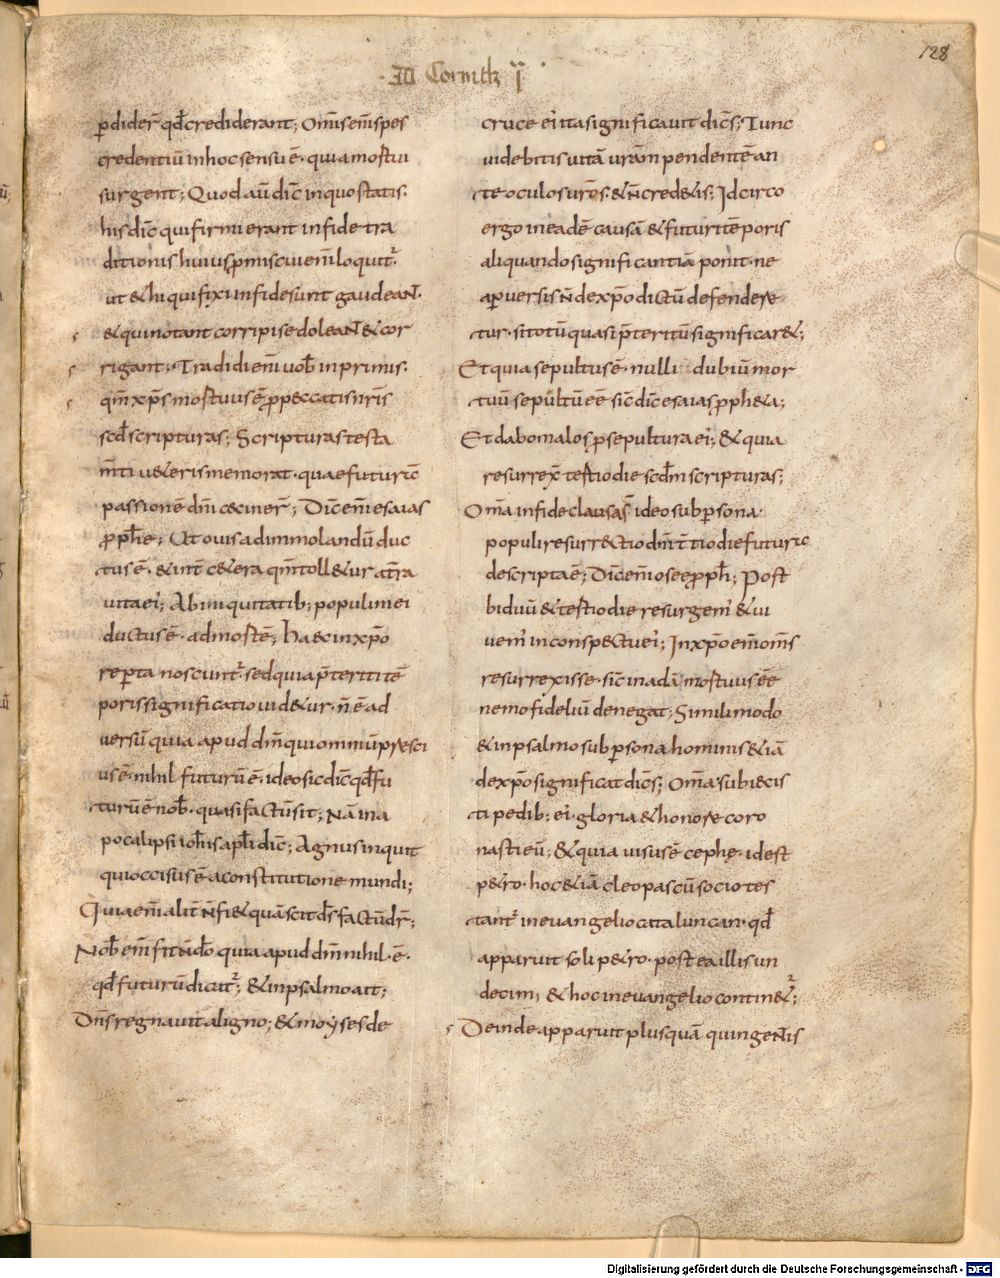 128
Ad Corinth I
ꝑdider̄ qd̄ crediderant; Om̄is em̄ spes
credentiū in hoc sensu ē· quia mortui
surgent; Quod aū dic̄ in quo statis·
his dic̄ qui firmi erant in fide tra
ditionis huius ꝓmiscui em̄ loquit̄·
ut & hi qui fixi in fide sunt gaudeant·
& qui notant corripi se doleant & cor
rigant; Tradidi em̄ uob̄ in primis·
qm̄ xp̄s mortuus ē ꝓ peccatis nr̄is
scd̄ scripturas; Scripturas testa
m̄ti u&eris memorat· quae futurā
passionē dn̄i ceciner̄; Dic̄ em̄ esaias
ꝓph̄e; Ut ouis ad immolandū duc
tus ē· & int̄ c&era qm̄ toll&ur a t̄ra
uita ei; Ab iniquitatib; populi mei
ductus ē· ad mortē; haec in xp̄o
reꝑta noscunt̄· sed quia p̄teriti tē
poris significatio uid&ur· n̄ ē ad
uersū quia apud dm̄ qui omniū praesci
us ē· nihil futurū ē· ideo sic dic̄ qd̄ fu
turū ē nob̄· quasi factū sit; Nā in a
pocalipsi ioh̄is apl̄i dic̄; Agnus inquit
qui occisus ē a constitutione mundi;
Quia em̄ alit̄ n̄ fi& quā scit ds̄ factū dr̄;
Nob̄ em̄ fit n̄ dō quia apud dm̄ nihil ē·
qd̄ futurū dicit̄; & in psalmo ait;
Dn̄s regnauit a ligno; & moyses de
cruce ei ita significauit dicēs; Tunc
uidebitis uitā urām pendentē an
te oculos ur̄os & n̄ cred&is; Idcirco
ergo in eadē causā & futuri tēporis
aliquando significantiā ponit· ne
a ꝑuersis n̄ de xp̄o dictū defendere
tur· si totū quasi p̄teritū significar&;
Et quia sepultus ē· nulli dubiū mor
tuū sepultū eē sic dic̄ esaias ꝓph&a;
Et dabo malos ꝓ sepultura ei; & quia
resurrex̄ tertio die scdm̄ scripturas;
Om̄a in fide clausās̄ ideo sub ꝑsona
populi resurrectio dn̄i t̄tio die futura
descripta ē; Dic̄ em̄ oseę ꝓph̄; Post
biduū & tertio die resurgem̄ & ui
uem̄ in conspectu ei; In xp̄o em̄ om̄s
resurrexisse· sic̄ in adā mortuus eē
nemo fideliū denegat; Simili modo
& in psalmo sub ꝑsona hominis &iā
de xp̄o significat dicēs; Om̄a subiecis
ti pedib; ei· gloria & honore coro
nasti eū; & quia uisus ē cephę· id est
p&ro· hoc &iā cleopas cū socio tes
tant̄ in euangelio cata lucan· qd̄
apparuit soli p&ro· post ea illis un
decim; & hoc in euangelio contin&̄;
Deinde apparuit plus quā quingentis
Digitalisierung gefördert durch die Deutsche Forschungsgemeinschaft - DFG